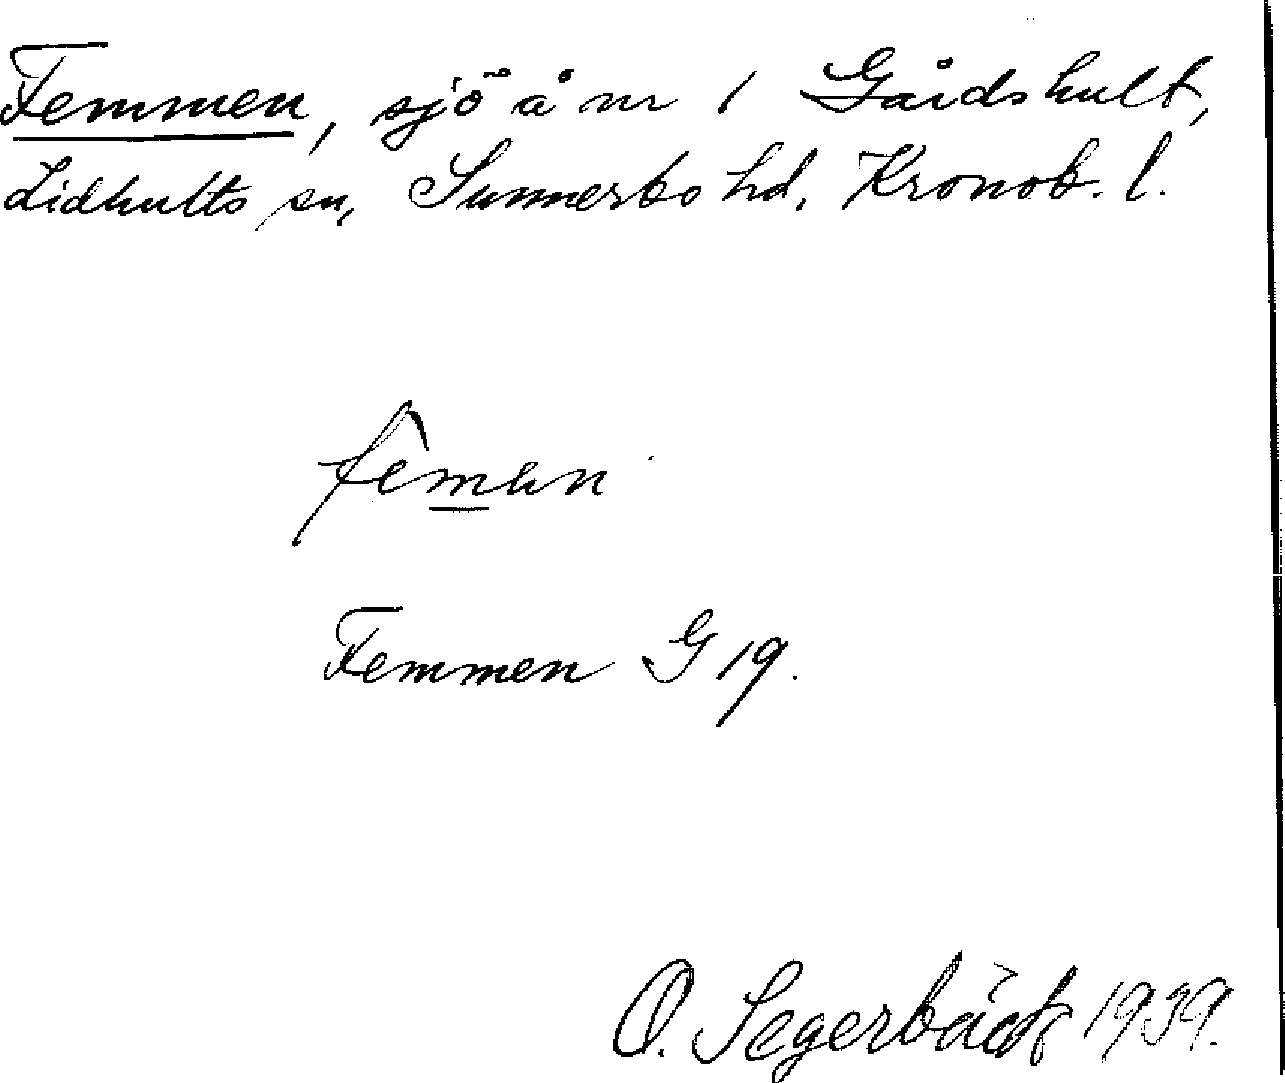 Femmen, sjö å nr 1 Gårdshult,
Lidhults sn, Sunnerbo hd. Kronob. l.
femen
Femmen G 19.
O. Segerbäck 1939.